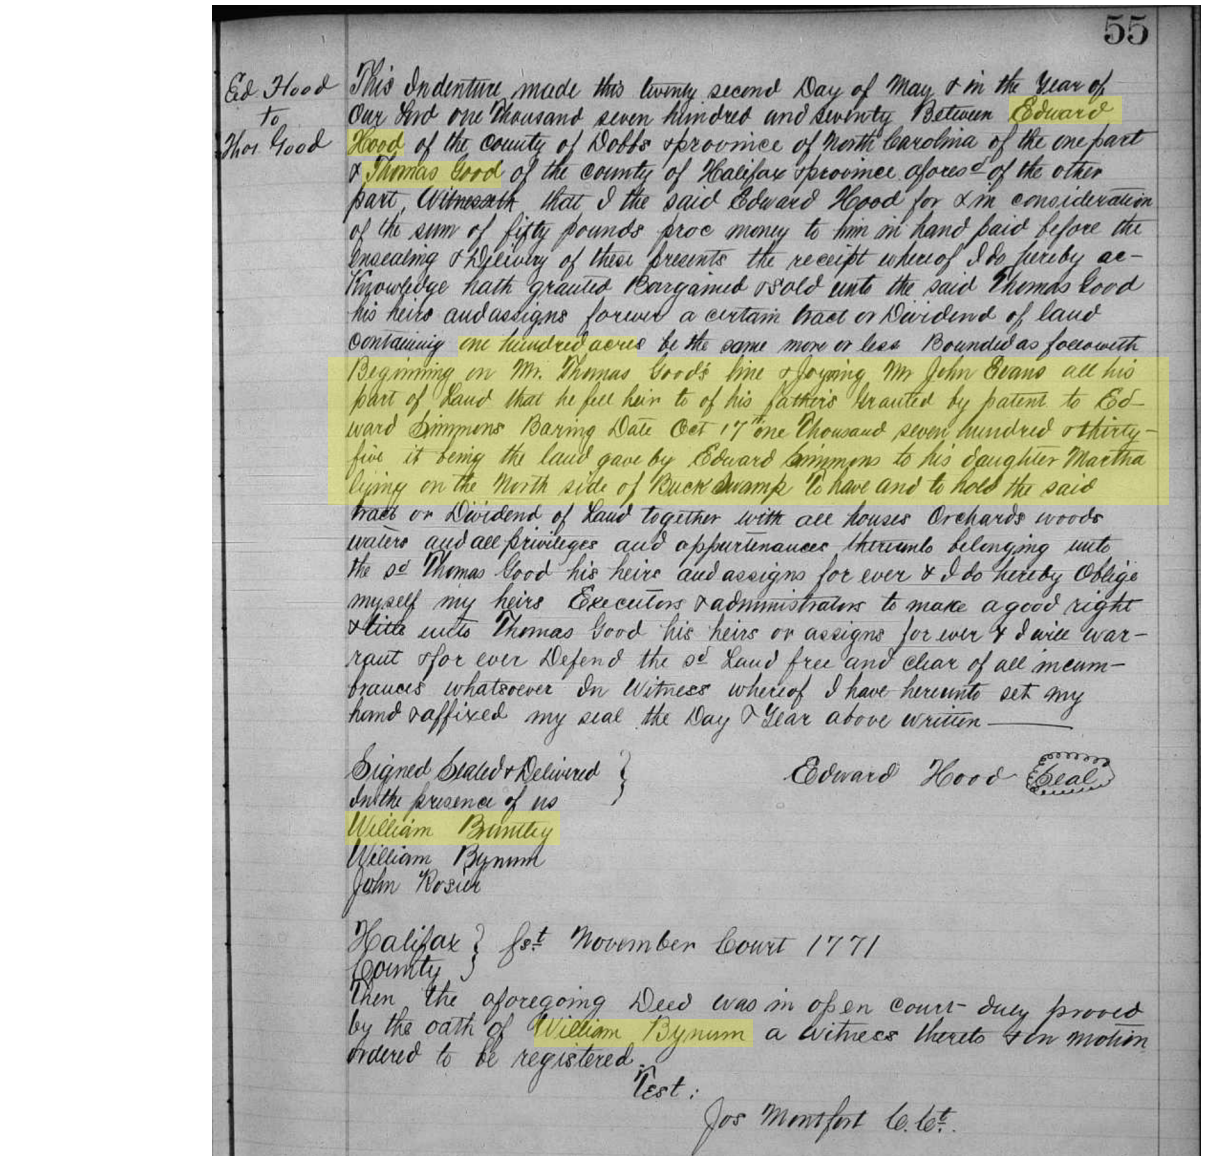 55
Ed Hood
to
Thos Good
This Indenture made this twenty second Day of May & in the Year of
Our Lord one Thousand seven hundred and seventy Between Edward
Hood of the county of Dobbs & province of North Carolina of the one part
& Thomas Good of the county of Halifax & province aforesd of the other
part, Witnesseth that I the said Edward Hood for & in consideration
of the sum of fifty pounds proc money to him in hand paid before the
ensealing & Delivery of these presents the receipt whereof I do hereby ac-
Knowledge hath granted Bargained & sold unto the said Thomas Good
his heirs and assigns forever a certain tract or Dividend of land
containing one hundred acres be the same more or less Bounded as followeth
Beginning on Mr. Thomas Good's line & Joyning Mr John Evans all his
part of Land that he fell heir to of his father's Granted by patent to Ed-
ward Simmons Baring Date Oct 17th one Thousand seven hundred & thirty-
five it being the land gave by Edward Simmons to his daughter Martha
lying on the North side of Buck Swamp To have and to hold the said
tract or Dividend of Land together with all houses Orchards woods
waters and all privileges and appurtenances thereunto belonging unto
the sd Thomas Good his heirs and assigns for ever & I do hereby Oblige
myself my heirs Executors & administrators to make a good right
& title unto Thomas Good his heirs or assigns for ever & I will war-
rant & for ever Defend the sd Land free and clear of all incum-
brances whatsoever In Witness whereof I have hereunto set my
hand & affixed my seal the Day & Year above written
Signed Sealed & Delivered } Edward Hood Seal
In the presence of us
William Bruntley
William Bynum
John Rosier
Halifax } fst November Court 1771
County }
Then the aforegoing Deed was in open court duly proved
by the oath of William Bynum a witness thereto & on motion
ordered to be registered.
Test:
Jos Montfort C. Ct.